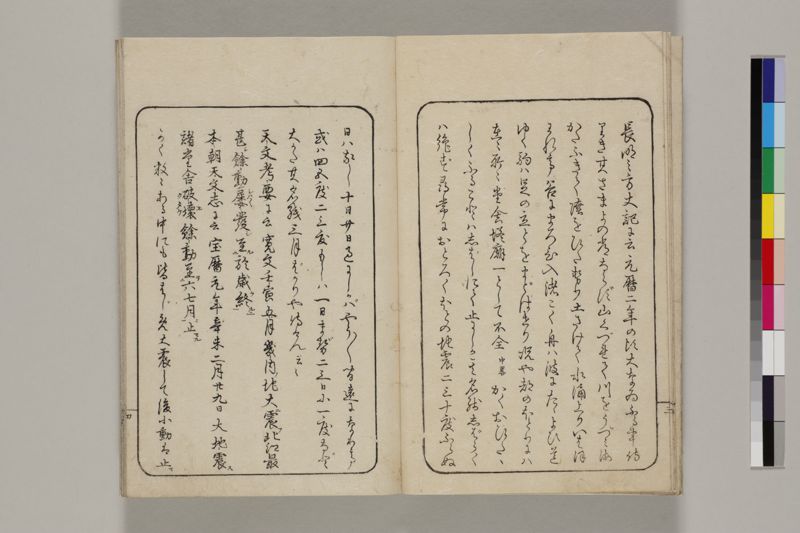 長明之方丈記に云元暦二年の比大なゐふる事侍
りき其さまよの常ならず山くづれて川をうづみ海
かたふきて陸をひたせり土さけて水涌上りいはほ
われて谷にまろひ入渚こく舟は浪にたゝよひ道
ゆく駒は足の立とをまどはせり況や都のほとりには
在々所々堂舎塔廟一として不全中畧かくおひたゝ
しくふる事はしばしにて止にしかども其名残しばらく
ハ絶ず尋常におとろくほとの地震二三十度ふらぬ
日ハなし十日廿日過にしかばやう〳〵間遠になりて
或ハ四五度二三度もしハ一日まぜ二三日に一度など
大かた其名残三月ばかりや侍けんと云々
天文考要に云寛文壬寅五月畿内地大震北江最
甚餘動屡発至於歳終
本朝天文志に云宝暦元年辛未二月廿九日大地震
諸堂舎破壊餘動至六七月止
かく数々ある中にも皆はじめ大震して後小動は止